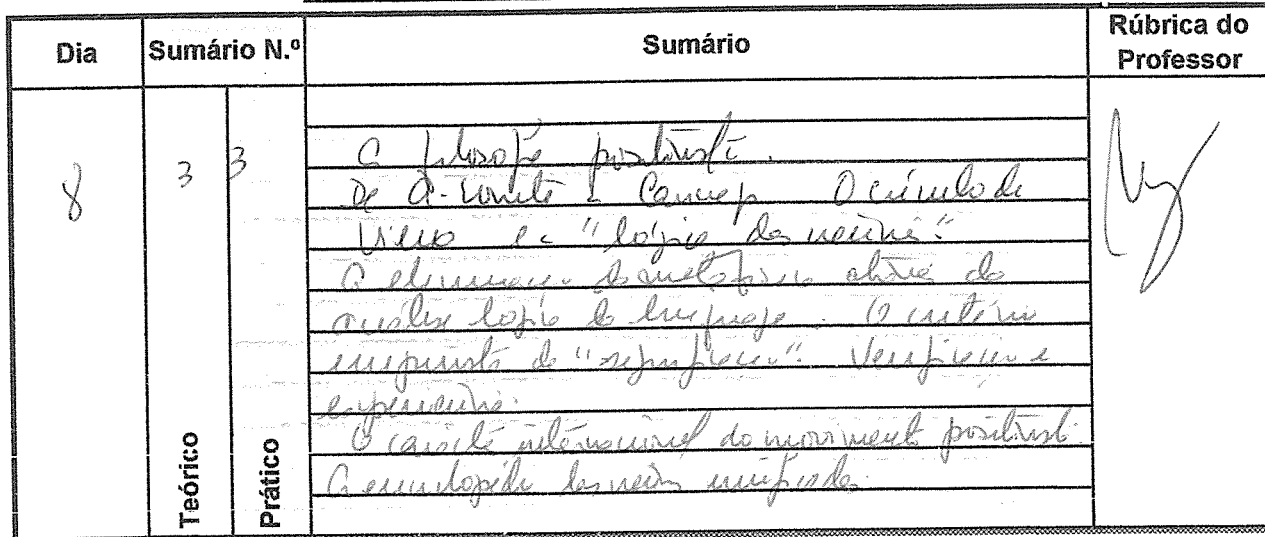 Dia Sumário N.º Sumário Rúbrica do Professor
8 3 3
A filosofia positivista.
De A. Comte a Carnap. O círculo de
Viena e a "lógica da ciência".
A eliminação da metafísica através da
análise lógica da linguagem. O critério
empirista de "significação". Verificação e
experiência.
O carácter internacional do movimento positivista.
A enciclopédia da ciência unificada.
Teórico
Prático